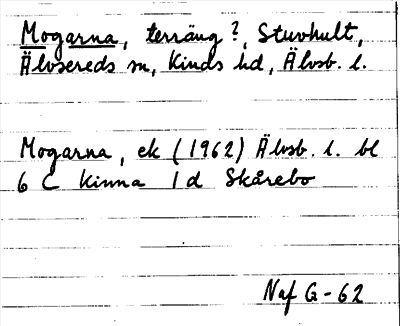 Mogarna, terräng?, Stuvhult,
Älvsereds sn, Kinds hd, Älvsb. l.
Mogarna, ek (1962) Älvsb. l. bl
6 C Kinna 1 d Skårebo
Naf G-62